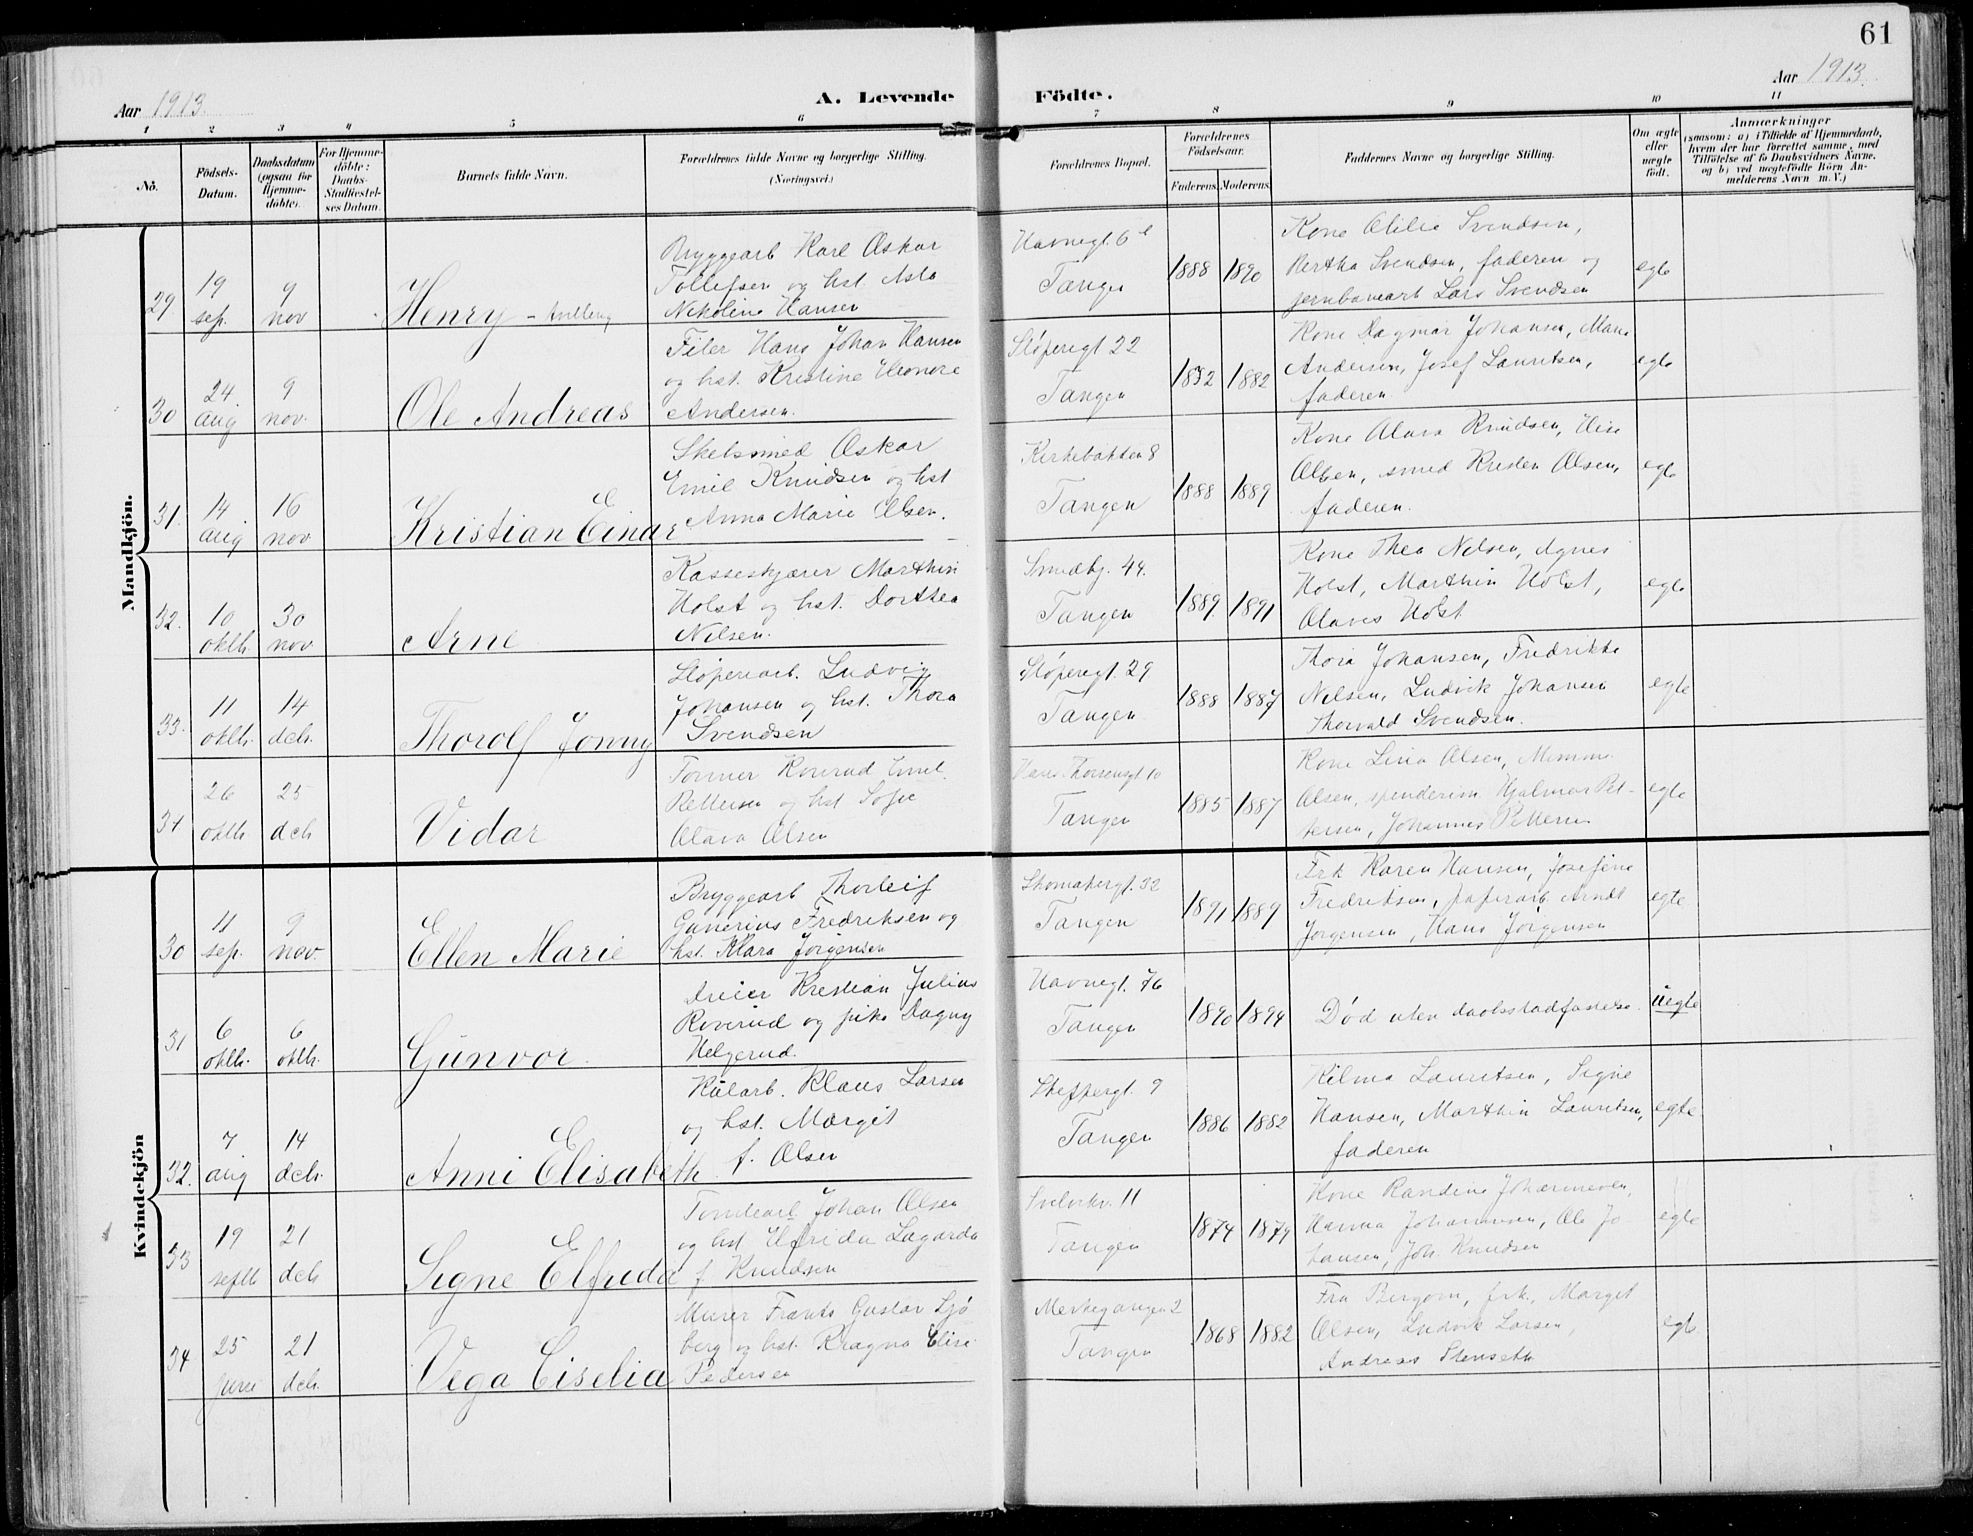 61
Aar 1913.
A. Levende Födte.
Aar 1913.
1 2 3 4 5 6 7 8 9 10 11
No.
Födsels-
Datum.
Daabsdatum
(ogsaa for
Hjemme-
döbte).
For Hjemme-
döbte:
Daabs-
Stadfæstel-
ses Datum.
Barnets fulde Navn.
Forældrenes fulde Navne og borgerlige Stilling.
(Næringsvei.)
Forældrenes Bopæl.
Forældrenes
Födselsaar.
Faderens. Moderens.
Faddernes Navne og borgerlige Stilling.
Om ægte
eller
uægte
født.
Anmærkninger
(saasom: a) i Tilfælde af Hjemmedaab,
hvem der har forrettet samme, med
Tilföielse af to Daabsvidners Navne,
og b) ved uægtefödte Börn An-
melderens Navn m. V.)
Mandkjön.
29. 19 sep. 9 nov Henry
Bryggearb Karl Oskar
Tollefsen og hst. Asta
Nikoline Hansen
Havnegt. 6
Tangen
1888 1890
Kone Otilie Svendsen,
Bertha Svendsen, faderen og
jernbanearb Lars Svendsen
egte
30 24. aug 9 nov. Ole Andreas
Filer Hans Johan Hansen
og hst. Kristine Eleonore
Andersen.
Støperigt 22
Tangen
1882
Kone Dagmar Johansen, Marie
Andersen, Josef Lauritsen,
faderen
egte
31. 14 aug 16 nov Kristian Einar
Oskar
Emil Knudsen og hst
Anna Marie Olsen.
Kirkebakken 8
Tangen
1888 1889
Kone Olava Knudsen, Elise
Olsen, smed Kristen Olsen,
faderen.
egte
32. 10 oktb. 30 nov Arne
Kasseskjærer Marthin
Holst og hst. Dorthea
Nilsen.
Smedbg. 44.
Tangen
1889. 1891
Kone Thea Nilsen, Agnes
Holst, Marthin Holst,
Olaves Holst
egte
33. 11 oktb. 14 dcb. Thorolf Jonny
Støperiarb. Ludvig
Johansen og hst. Thora
Svendsen
Støperigt. 29
Tangen
1888 1887
Thora Johansen, Fredrikke
Nilsen, Ludvik Johansen
Thorvald Svendsen.
egte
34 26 oktb 25 dcb Vidar
Former Konrad Emil
Pettersen og hst Sofie
Olava Olsen
Hans Thornesgt 10
Tangen
1885 1887
Kone Lina Olsen, Mimmi
Olsen, Hjalmar Pet-
tersen, Johannes Pettersen
egte
Kvindekjön
30 11 sep. 9 nov. Ellen Marie
Bryggearb Thorleif
Gunerius Fredriksen og
hst. Klara Jørgensen
32
Tangen
1891 1889
Frk Karen Hansen, Josefine
Fredriksen, papirarb. Arndt
Jørgensen, Hans Jørgensen
egte
31 6 oktb. 6 oktb. Gunvor
Dreier Kristian Julius
Roverud og pike Dagny
Helgerud.
Havnegt. 76
Tangen
1890 1894
Død uten daabsstadfæstelse.
uegte
32. 7 aug 14 dcb. Anni Elisabeth
Klaus Larsen
og hst. Margit
f. Olsen
9
Tangen
1886 1882
Hilma Lauritsen, Signe
Hansen, Marthin Lauritsen,
faderen
egte
33 19 septb 21 dcb Signe Elfrida
Tomtearb Johan Olsen
og hst Elfrida Lagarda
f Knudsen
Svelvikv. 11
Tangen
1874 1879
Kone Randine Johannesen,
Hanna Johannesen, Ole Jo
hansen, Joh. Knudsen
egte
34 25 juni 21 dcb. Vega Ciselia
Murer Frants Gustav Sjö
berg og hst. Ragna Elise
Pedersen
Merkegangen 2
Tangen
1868 1882
Fru Bergom, frk. Margit
Olsen, Ludvik Larsen,
Andreas Stenseth
egte